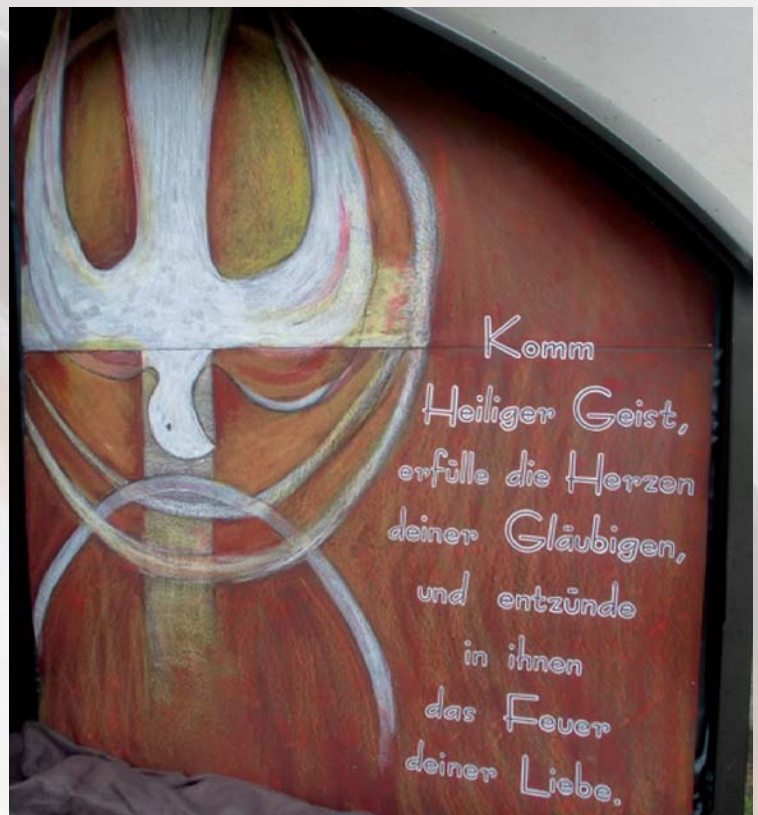 Komm
Heiliger Geist,
erfülle die Herzen
deiner Gläubigen,
und entzünde
in ihnen
das Feuer
deiner Liebe.